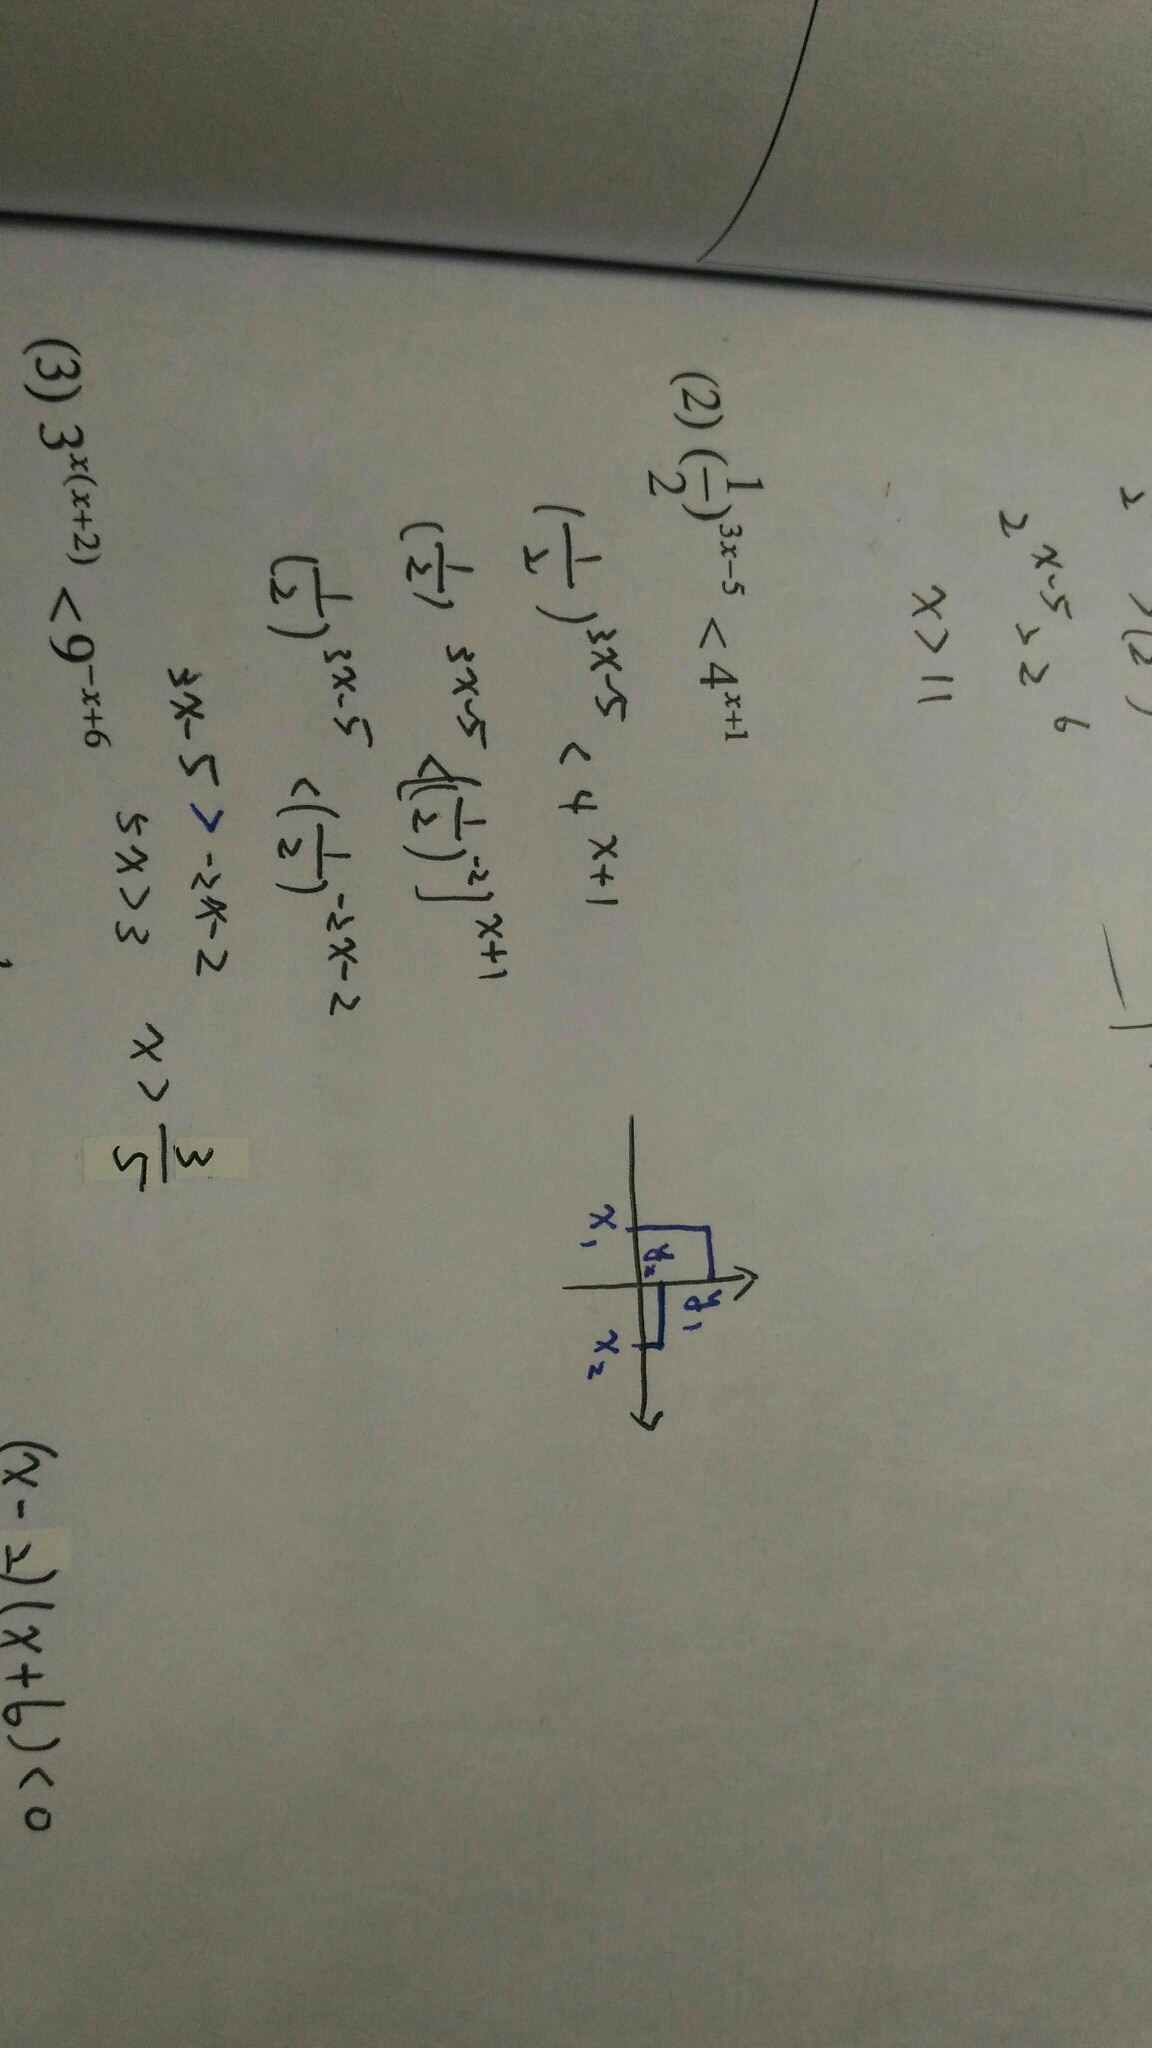 2^{x-5} > 2^{6}
x > 11
(2) (\frac{1}{2})^{3x-5} < 4^{x+1}
(\frac{1}{2})^{3x-5} < 4^{x+1}
(\frac{1}{2})^{3x-5} < [(\frac{1}{2})^{-2}]^{x+1}
(\frac{1}{2})^{3x-5} < (\frac{1}{2})^{-2x-2}
3x-5 > -2x-2
5x > 3 x > \frac{3}{5}
y_1
y_2
x_1 x_2
(3) 3^{x(x+2)} < 9^{-x+6}
(x-2)(x+6) < 0